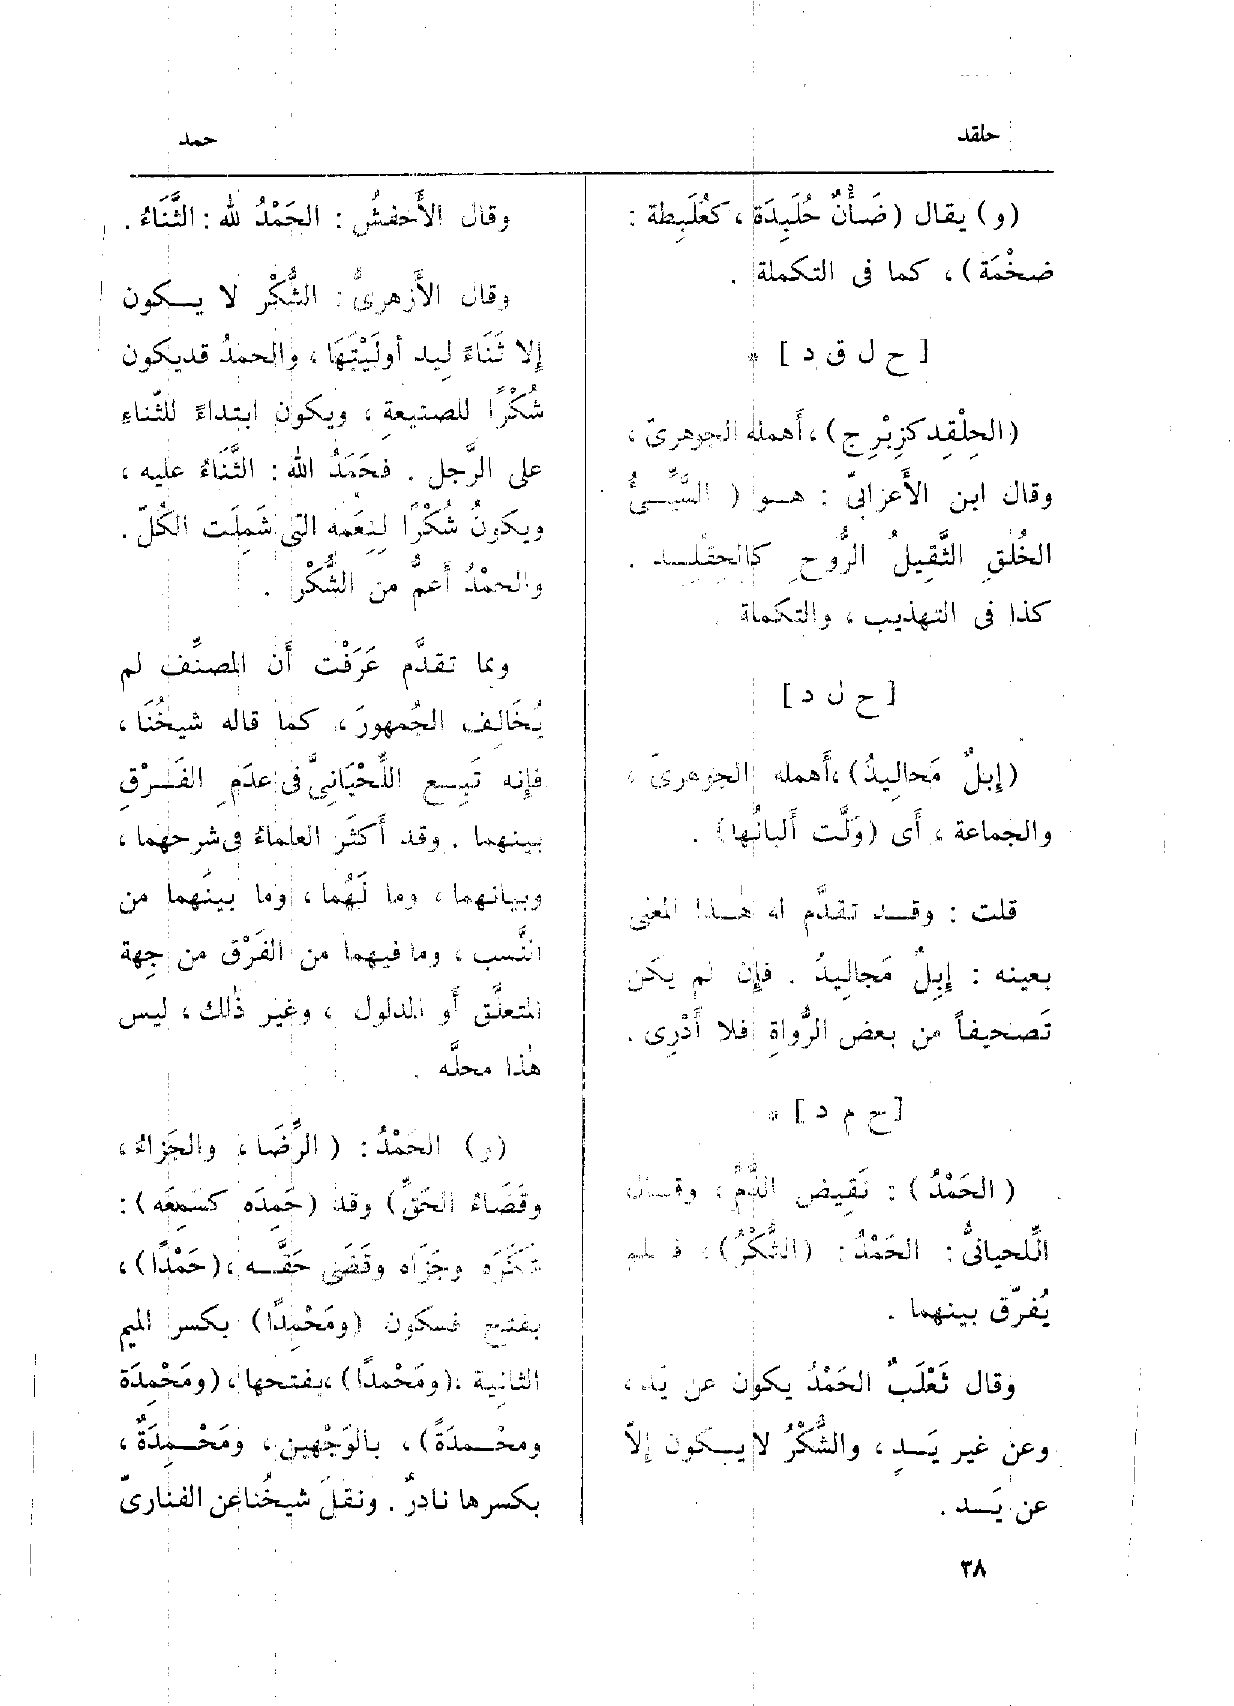 حلقد
حمد
(و) يقال (ضَأْنٌ حُلَبِدَة، كعُلَبِطة :
ضخْمَة) ، كما فى التكملة .
[ ح ل ق د ] *
(الحِلْقِد كزِبْرِج)، أهمله الجوهرىّ ،
وقال ابن الأَعرابىّ : هـو ( السَّيِّـئُ
الخُلقِ الثَّقِيلُ الرُّوحِ كالحِقْلِـد .
كذا فى التهذيب ، والتكملة .
[ ح ل د ]
(إِبلٌ مَحالِيدُ)، أهمله الجوهرىّ ،
والجماعة ، أَى (وَلَّت أَلبانُها) .
قلت : وقـد تقدَّم له هـذا المعنى
بعينه : إِبِلٌ مَجالِيدُ . فإِن لم يكن
تَصحيفاً من بعض الرُّواةِ فلا أَدْرِى .
[ ح م د ] *
( الحَمْدُ ) : نَقِيض الذَّمّ ، وقـال
اللِّحيانىُّ : الحَمْدُ : (الشُّكْرُ) ، فـلم
يُفرِّق بينهما .
وقال ثَعْلَبٌ الحَمْدُ يكون عن يَد ،
وعن غير يَـدٍ ، والشُّكْرُ لا يـكون إِلاّ
عن يَـد .
وقال الأَخفشُ : الحَمْدُ لله : الثَّنَاءُ .
وقال الأَزهرىُّ : الشُّكْر لا يـكون
إِلا ثَنَاءً لِيد أَولَيْتَهَا ، والحمدُ قد يكون
شُكْرًا للصنيعة ، ويكون ابتداءً للثّناءِ
على الرَّجل . فحَمَدُ الله : الثَّنَاءُ عليه ،
ويكونُ شُكْرًا لِنِعَمه التى شَمِلَت الكُلّ .
والحمْدُ أَعمُّ من الشُّكْر .
وبما تقدَّم عَرَفْت أَن المصنِّف لم
يُخَالِف الجُمهورَ ، كما قاله شيخُنَا ،
فإِنه تَبِـع اللِّحْيَانِىَّ فى عدَمِ الفَـرْقِ
بينهما . وقد أَكثَر العلماءُ فى شرحهما ،
وبيانهما ، وما لَهُما ، وما بينَهما من
النَّسب ، وما فيهما من الفَرْق من جِهة
المتعلَّق أَو المدلول ، وغير ذٰلك ، ليس
هٰذا محلّه .
(و) الحَمْدُ : ( الرِّضَا ، والجَزاءُ ،
وقَضَاءُ الحَقِّ) وقد (حَمِدَه كسَمِعَه) :
شَكَرَه وجَزَاه وقَضَى حَقَّـه ، (حَمْدًا) ،
بفتح فسكون (ومَحْمِدًا) بكسر الميم
الثانِية ، (ومَحْمدًا) ، بفتحها ، (ومَحْمِدة
ومحْـمدَةً) ، بالوَجْهين ، ومَحْـمِدَةٌ ،
بكسرها نادرٌ . ونقلَ شيخُنا عن الفنارىّ
٣٨